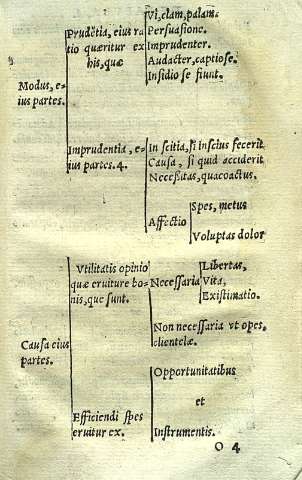 Vi, clam, palam.
Prudētia, eius ra Persuasione.
tio quæritur ex Imprudenter.
his, quæ Audacter, captiose.
Insidiose fiunt.
Modus, e-
ius partes.
Imprudentia, e- Inscitia, si inscius fecerit
ius partes. 4. Causa, si quid acciderit
Necessitas, qua coactus.
Spes, metus
Affectio
Voluptas dolor
Vtilitatis opinio Libertas,
quæ eruitur e bo- Necessaria Vita,
nis, que sunt. Existimatio.
Non necessaria vt opes,
Causa eius clientelæ.
partes.
Opportunitatibus
et
Efficiendi spes
eruitur ex. Instrumentis.
O 4